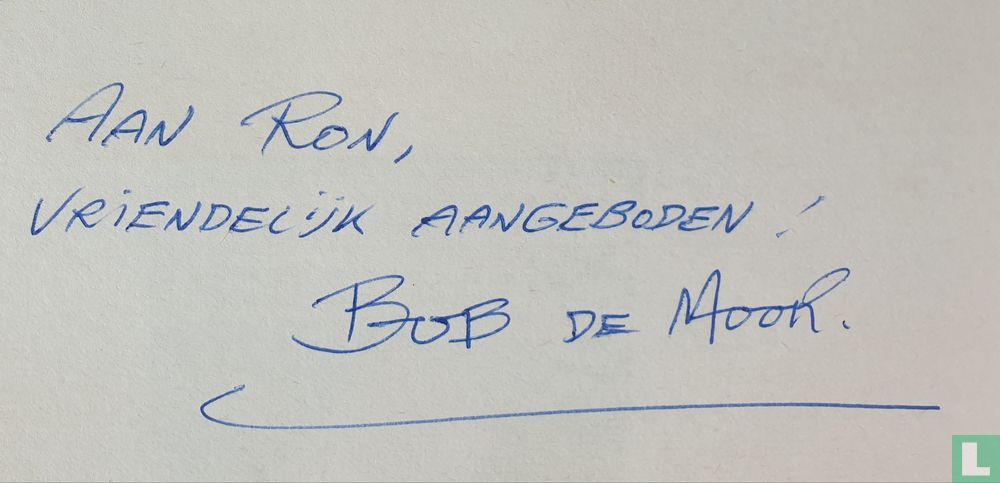 AAN RON,
VRIENDELIJK AANGEBODEN!
BOB DE MOOR.
L